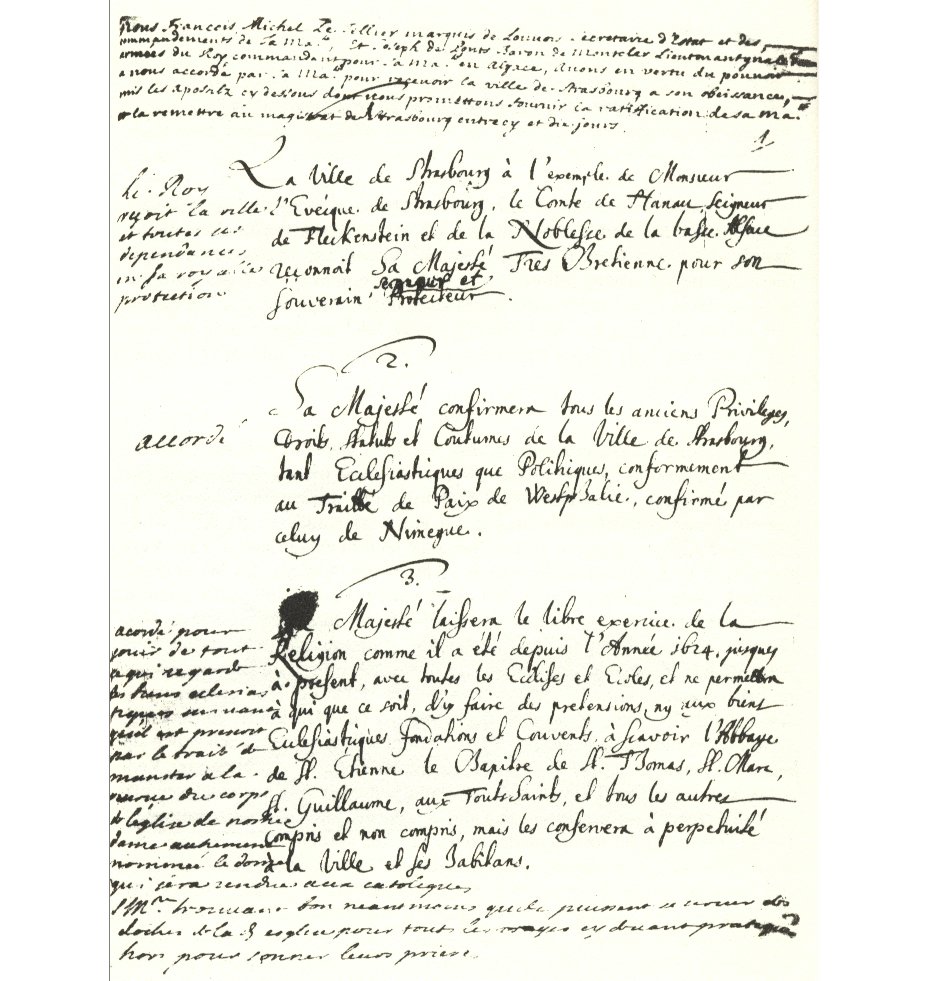 Nous François Michel Le Tellier marquis de Louvois Secretaire d'Estat et des
commandements de sa Ma.té, Et Joseph de Ponts Baron de Montclar Lieutenant general des
armées du Roy commandant pour sa Ma.té en Alsace, avons en vertu du pouvoir
a nous accordé par sa Ma.té pour recevoir la ville de Strasbourg a son obeissance,
mis les apostilz cy dessous dont nous promettons fournir la ratiffication de sa Ma.té
et la remettre au magistrat de Strasbourg entre cy et dix jours.
1
La Ville de Strasbourg à l'exemple de Monsieur
l'Evéque de Strasbourg, le Comte de Hanau, Seigneur
de Fleckenstein et de la Noblesse de la basse Alsace
reconnoit Sa Majesté Tres Chretienne pour son
seigneur et
Souverain Protecteur.
Le Roy
reçoit la ville
et toutes ses
dependances
en sa royalle
protection
2.
Sa Majesté confirmera tous les anciens Privileges,
Droits, Statuts et Coutumes de la Ville de Strasbourg,
tant Ecclesiastiques que Politiques, conformement
au Traitté de Paix de Westphalie, confirmé par
celuy de Nimegue.
accordé
3.
Sa Majesté laissera le libre exercice de la
Religion comme il a été depuis l'Année 1624. jusques
à present, avec toutes les Eclises et Ecoles, et ne permettra
à qui que ce soit, d'y faire des pretensions, ny aux biens
Ecclesiastiques Fondations et Couvents, à scavoir l'Abbaye
de St. Etienne le Chapitre de St. Thomas, St. Marc,
St. Guillaume, aux Touts Saints, et tous les autres
compris et non compris, mais les conservera à perpetuité
à la Ville et ses habitans.
acordé pour
jouir de tout
ce qui regarde
les biens eclesias
tiques suivant
qu'il est prescrit
par le traité de
munster a la
reserve du corps
de l'eglise de nostre
dame autrement
nommée le dome
qui sera rendue aux catoliques
sa Ma.té trouvant bon neansmoins qu'ils puissent se servir des
cloches de la d. esglise pour tous les usages cy devant pratiqués
hors pour sonner leurs prieres.